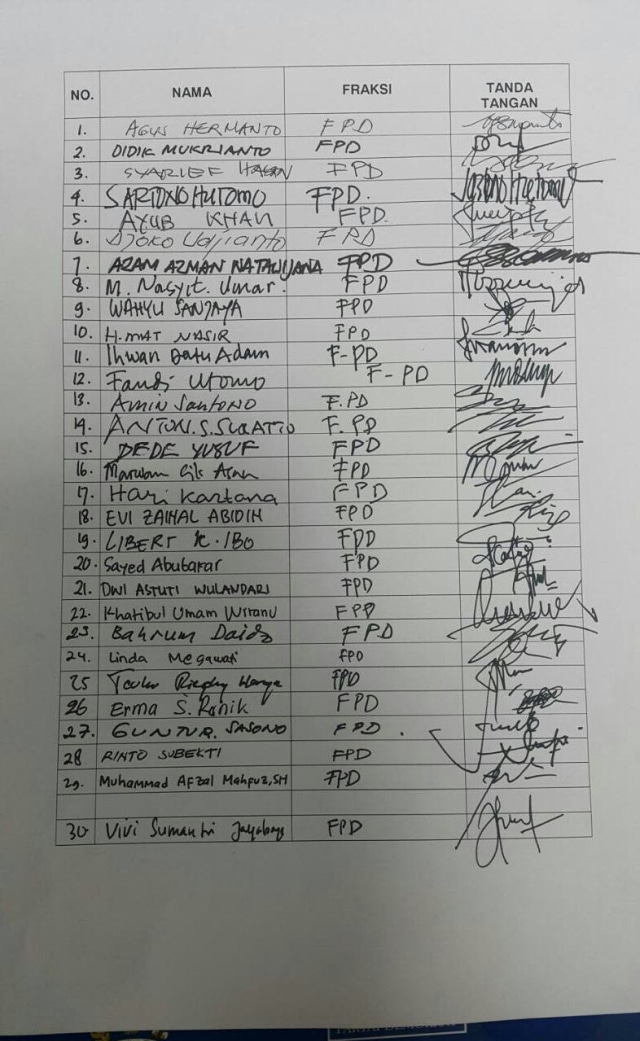 NO. NAMA FRAKSI TANDA TANGAN
1. AGUS HERMANTO FPD
2. DIDIK MUKRIANTO FPD
3. SYARIEF HASAN FPD
4. SARTONO HUTOMO FPD. SARTONO HUTOMO
5. AYUB KHAN FPD
6. DJOKO Udjianto FPD
7. AZAM AZMAN NATAWIJANA FPD
8. M. Nasyit. Umar. FPD
9. WAHYU SANJAYA FPD
10. H.MAT NASIR FPD
11. Ihwan Datu Adam F-PD
12. Fandi Utomo F-PD
13. Amin Santono F.PD
14. ANTON.S.SURATTO F.PD
15. DEDE YUSUF FPD
16. Marwan Cik Asan FPD
17. Hari Kartana FPD
18. EVI ZAINAL ABIDIN FPD
19. LIBERT K.IBO FPD
20. Sayed Abubakar FPD
21. DWI ASTUTI WULANDARI FPD
22. Khatibul Umam Wiranu FPD
23. Bahrum Daido FPD
24. Linda Megawati FPD
25 Teuku Riefky Harsya FPD
26 Erma S. Ranik FPD
27. GUNTUR. SASONO FPD.
28 RINTO SUBEKTI FPD
29. Muhammad Afzal Mahfuz,SH FPD
30 Vivi Sumantri Jayabaya FPD